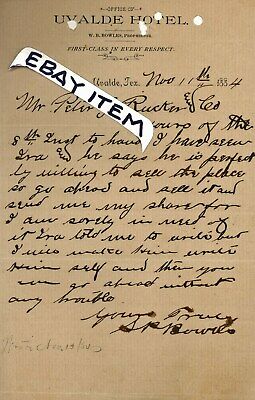 OFFICE OF
UVALDE HOTEL.
W. B. BOWLES, PROPRIETOR.
FIRST-CLASS IN EVERY RESPECT.
EBAY ITEM
Uvalde, Tex, Nov 11th 1884
Mr Peter & Co
yours of the
8th Inst to hand I have seen
Ira & he says he is perfect
ly willing to sell the place
so go ahead and sell it and
send me my share for
I am sorely in need of
it Ira told me to write but
I will make him write
him self and then you
can go ahead without
any trouble.
Yours Truly
Bowles